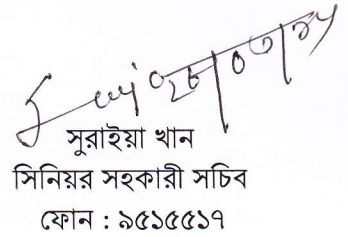 সুরাইয়া খান
সিনিয়র সহকারী সচিব
ফোন : ৯৫১৫৫১৭